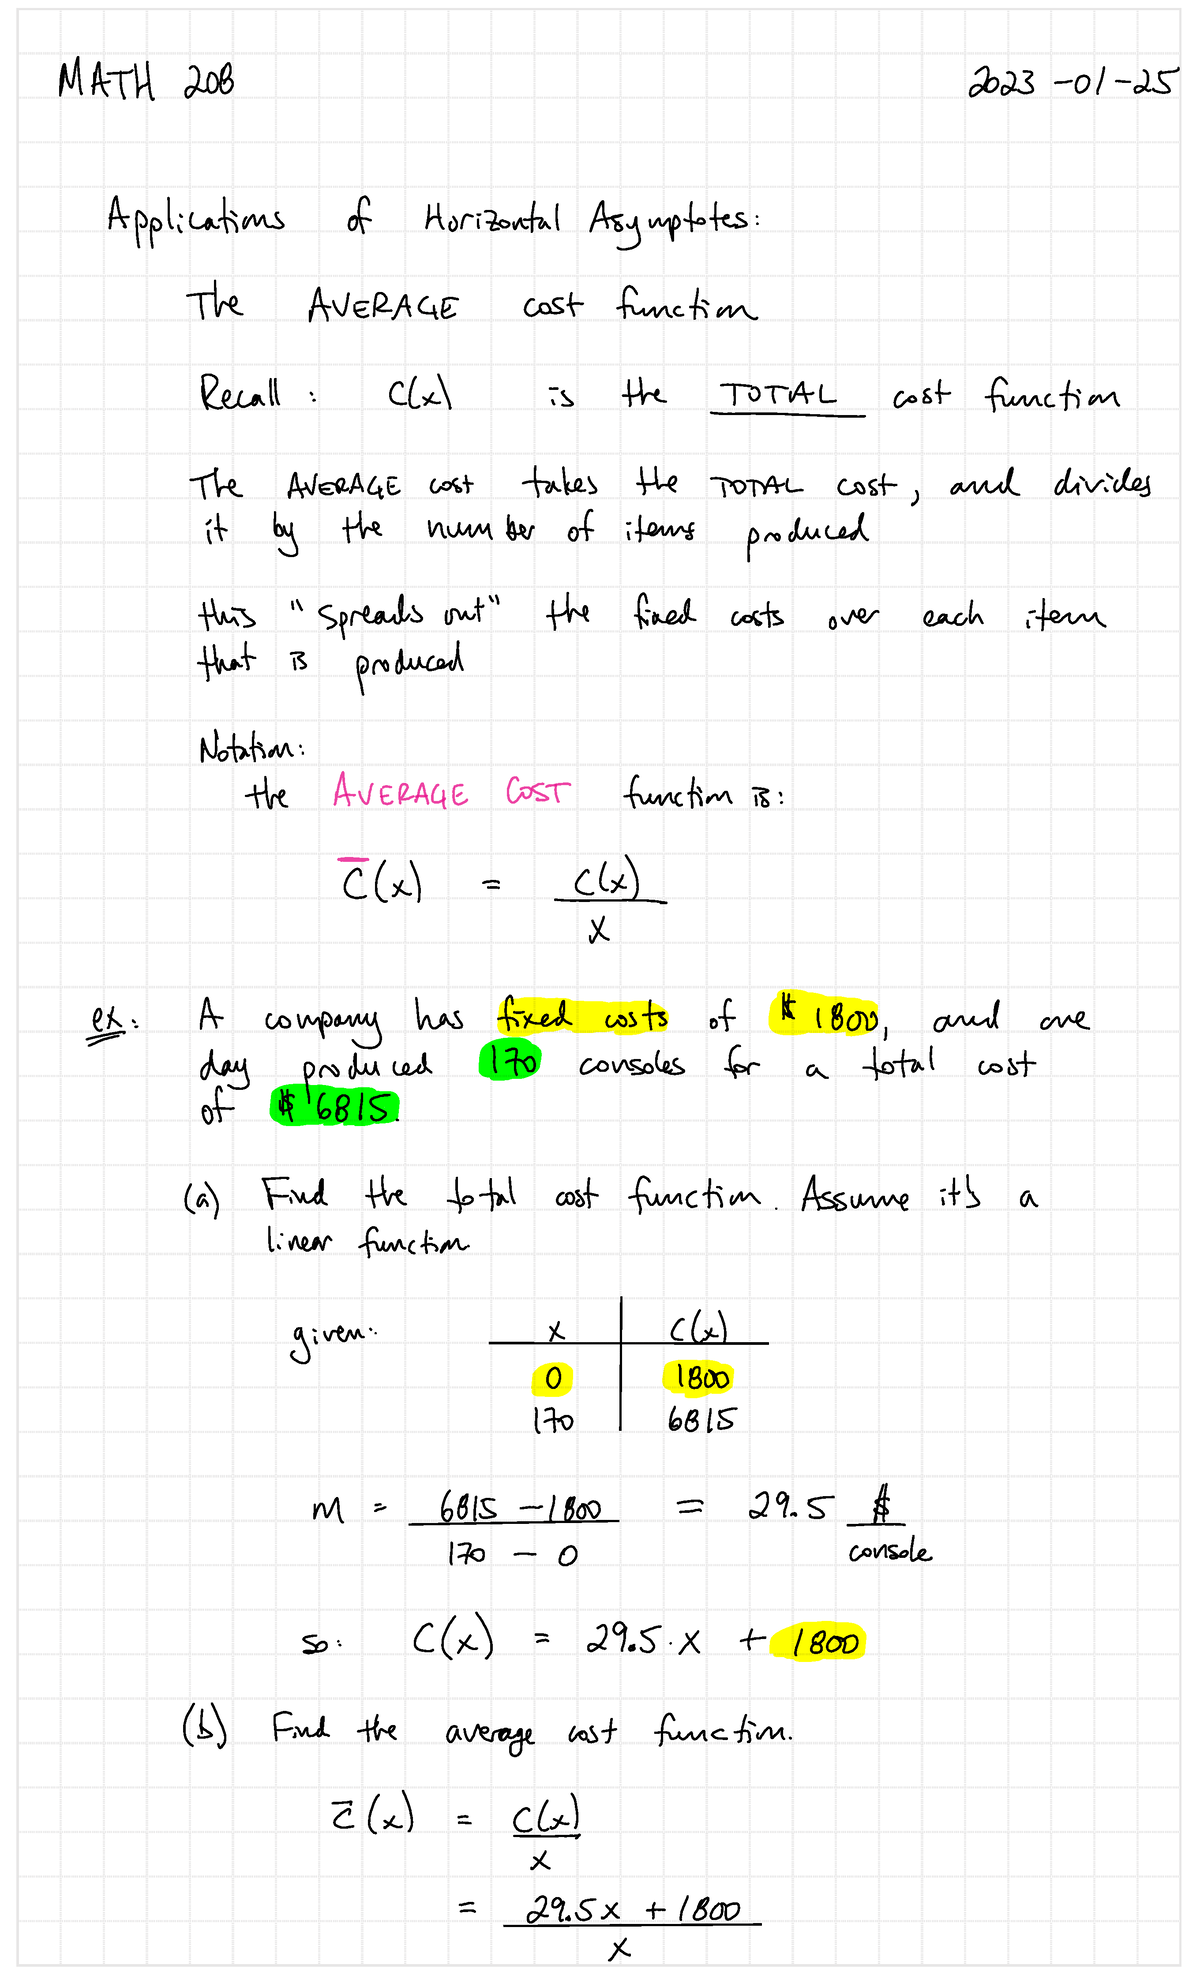 MATH 208 2023-01-25
Applications of Horizontal Asymptotes:
The AVERAGE cost function
Recall: C(x) is the TOTAL cost function
The AVERAGE cost takes the TOTAL cost, and divides
it by the number of items produced
this "spreads out" the fixed costs over each item
that is produced
Notation:
the AVERAGE COST function is:
C̅(x) = C(x)
x
ex: A company has fixed costs of $1800, and one
day produced 170 consoles for a total cost
of $6815.
(a) Find the total cost function. Assume it's a
linear function.
given: x C(x)
0 1800
170 6815
m = 6815 - 1800 = 29.5 $
170 - 0 console
so: C(x) = 29.5·x + 1800
(b) Find the average cost function.
C̅(x) = C(x)
x
= 29.5x + 1800
x